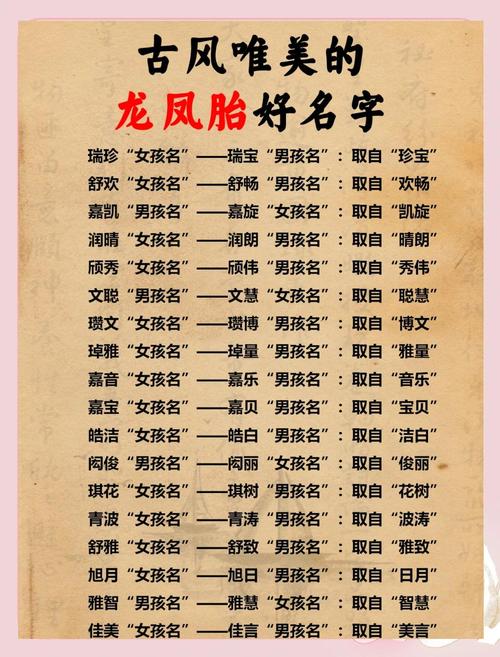 古风唯美的
龙凤胎好名字
瑞珍“女孩名”——瑞宝“男孩名”：取自“珍宝”
舒欢“女孩名”——舒畅“男孩名”：取自“欢畅”
嘉凯“男孩名”——嘉旋“女孩名”：取自“凯旋”
润晴“女孩名”——润朗“男孩名”：取自“晴朗”
颀秀“女孩名”——颀伟“男孩名”：取自“秀伟”
文聪“男孩名”——文慧“女孩名”：取自“聪慧”
瓒文“女孩名”——瓒博“男孩名”：取自“博文”
琸雅“女孩名”——琸量“男孩名”：取自“雅量”
嘉音“女孩名”——嘉乐“男孩名”：取自“音乐”
嘉宝“女孩名”——嘉贝“男孩名”：取自“宝贝”
皓洁“女孩名”——皓白“男孩名”：取自“洁白”
闳俊“男孩名”——闳丽“女孩名”：取自“俊丽”
琪花“女孩名”——琪树“男孩名”：取自“花树”
青波“女孩名”——青涛“男孩名”：取自“波涛”
舒雅“女孩名”——舒致“男孩名”：取自“雅致”
旭月“女孩名”——旭日“男孩名”：取自“日月”
雅智“男孩名”——雅慧“女孩名”：取自“智慧”
佳美“女孩名”——佳言“男孩名”：取自“美言”